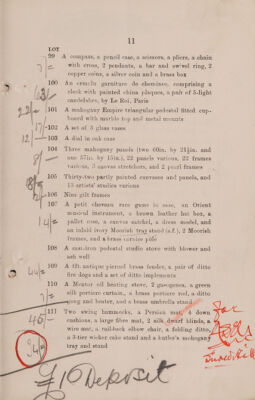 11
LOT
99 A compass, a pencil case, a scissors, a pliers, a chain
with cross, 2 pendants, a bar and swivel ring, 2
copper coins, a silver coin and a brass box
7/=
100 An ormolu garniture de cheminee, comprising a
clock with painted china plaques, a pair of 5-light
candelabra, by Le Roi, Paris
63/-
101 A mahogany Empire triangular pedestal fitted cup-
board with marble top and metal mounts
22/-
102 A set of 3 glass vases
17/-
103 A dial in oak case
12/
104 Three mahogany panels (two 60in. by 21½in. and
one 57in. by 15in.), 22 panels various, 22 frames
various, 3 canvas stretchers, and 2 pearl frames
8/-
105 Thirty-two partly painted canvases and panels, and
13 artists' studies various
8/-
106 Nine gilt frames
107 A petit chevaux race game in case, an Orient
musical instrument, a brown leather hat box, a
pallet case, a canvas satchel, a dress model, and
an inlaid ivory Moorish tray stand (a.f.), 2 Moorish
frames, and a brass cornice pole
14/=
108 A cast-iron pedestal studio stove with blower and
ash well
109 A 4ft. antique pierced brass fender, a pair of ditto
fire dogs and a set of ditto implements
44/=
110 A Meteor oil heating stove, 2 guegones, a green
silk portiere curtain, a brass portiere rod, a ditto
gong and beater, and a brass umbrella stand
7/=
111 Two swing hammocks, a Persian mat, 4 down
cushions, a large fibre mat, 2 silk dwarf blinds, a
wire mat, a rail-back elbow chair, a folding ditto,
a 3-tier wicker cake stand and a butler's mahogany
tray and stand
45/-
for
£10 Deposit